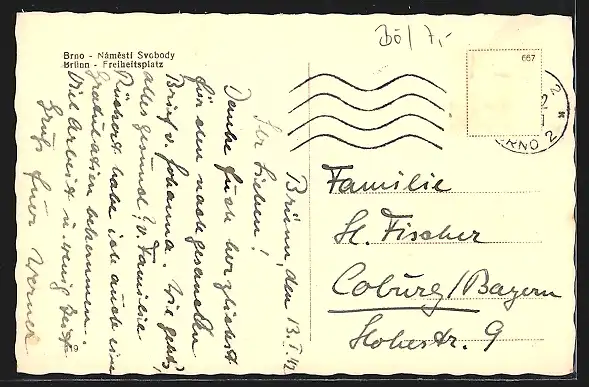 Bö/7,-
Brno - Náměstí Svobody
Brünn - Freiheitsplatz
667
BRNO 2
2
Brünn, den 13.I.42
Ihr Lieben!
Danke Euch herzlichst
für den nachgesandten
Brief v. Johanna. Wie gehts,
alles gesund? v. Familie
habe ich auch ein
Gratulation bekommen.
Viel Arbeit u. wenig Zeit.
Gruß Euer Werner
Familie
H. Fischer
Coburg/Bayern
Hohestr. 9